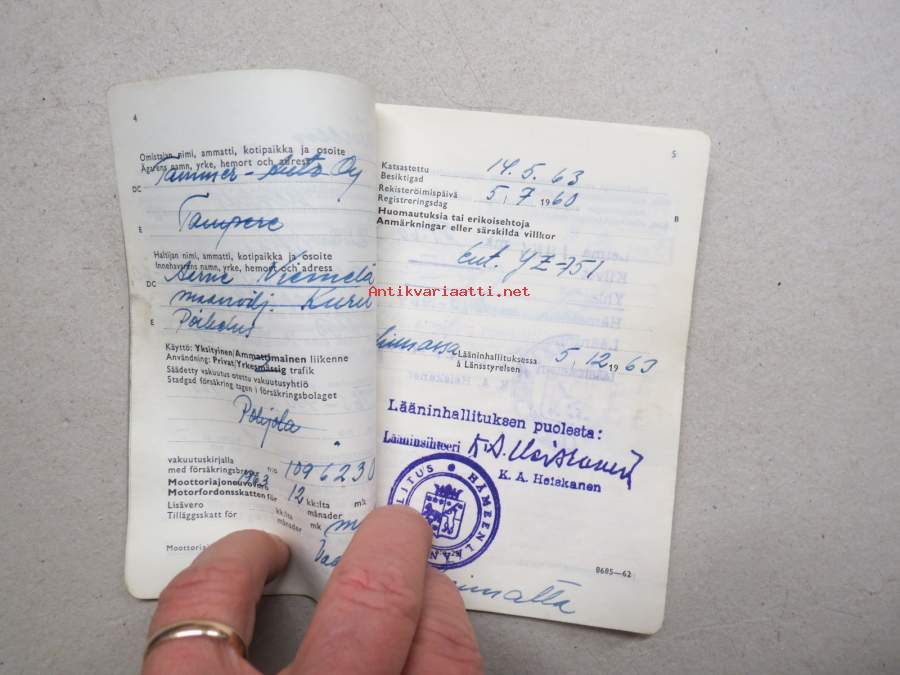 4
Omistajan nimi, ammatti, kotipaikka ja osoite
Ägarens namn, yrke, hemort och adress
DC Tammer-Auto Oy
E Tampere
Haltijan nimi, ammatti, kotipaikka ja osoite
Innehavarens namn, yrke, hemort och adress
DC Aarne Niemelä
maanvilj. Kuru
E Poikelus
Käyttö: Yksityinen/Ammattimainen liikenne
Användning: Privat/Yrkesmässig trafik
Säädetty vakuutus otettu vakuutusyhtiö
Stadgad försäkring tagen i försäkringsbolaget
Pohjola
vakuutuskirjalla
med försäkringsbrev n:o 1096230
1963
Moottoriajoneuvovero
Motorfordonsskatten för 12 kk:lta mk
månader
Lisävero
Tilläggsskatt för kk:lta
månader mk
Moottoriaj
5
Katsastettu
Besiktigad 14.5.63
Rekisteröimispäivä
Registreringsdag 5/7 1960
Huomautuksia tai erikoisehtoja
Anmärkningar eller särskilda villkor
B
Ent. YZ-751
Antikvariaatti.net
Lääninhallituksessa
å Länsstyrelsen 5.12 1963
Lääninhallituksen puolesta:
Lääninsihteeri K.A. Heiskanen
K. A. Heiskanen
LITUS HÄMEENLÄÄN
8685—62